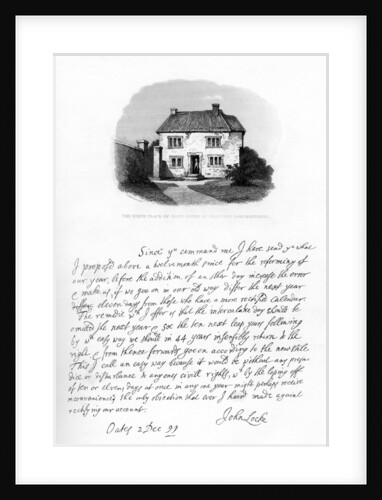 Since yu command me I have send yu what
I proposed above a twelvemonth since for the reforming of
our year, before the addition of an other day increase the error
& make us, if we goe on in our old way differ the next year
eleven days from those who have a more rectified Calendar
The remedie wch I offer is that the intercalar day should be
omitted the next year & soe the ten next leap years following
by wch easy way we should in 44 years insensibly return to the
right & from thence forwards goe on according to the new stile
This I call an easy way because it would be without any preju
dice or disturbance to any ones civil rights, wch by the loping off
of ten or eleven days at once in any one year might perhaps receive
inconveniency the only objection that ever I heard made against
rectifying our account.
John Locke
Oates 2 Dec 99